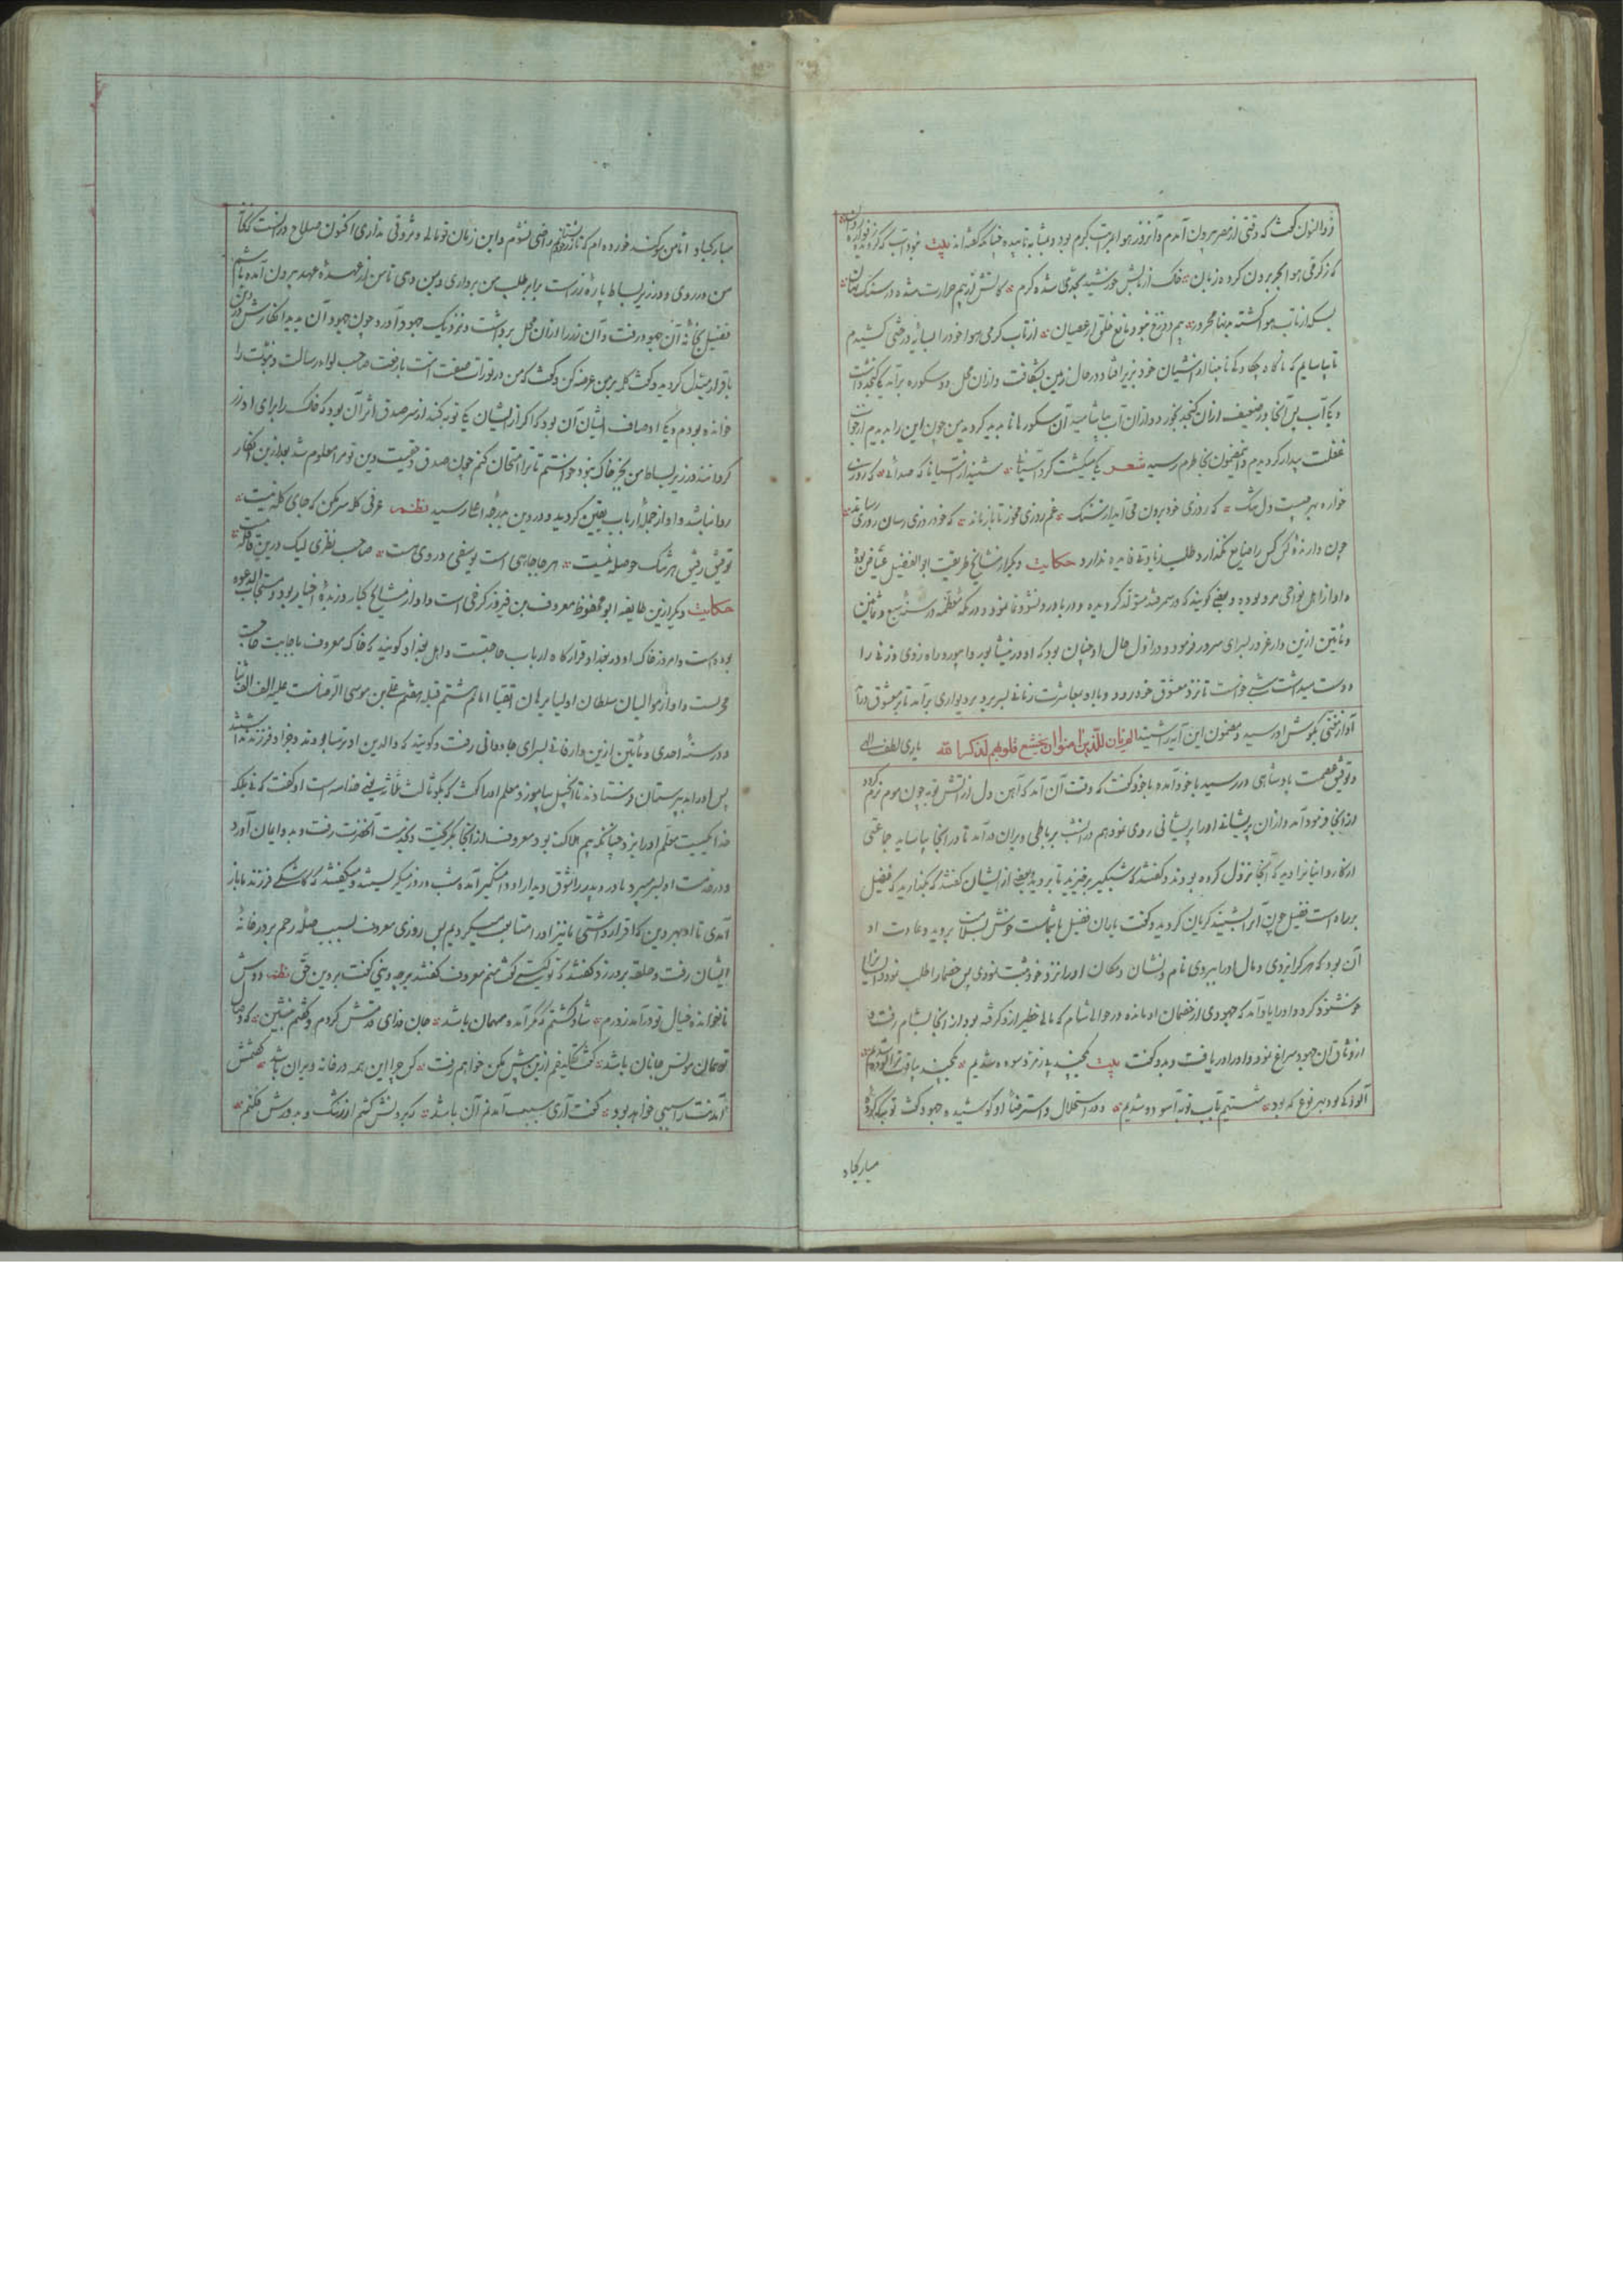 ذوالنون گفت که وقتی از مصر بیرون آمدم و آنروز هوا بمراتب گرم بود و بمثابه تابیده چنانکه گفته‌اند بیت نبود آب که کز فواره
کز گرمی هوا بیرون کرده زبان فلک از تابش خورشید بحدی شده گرم کاتش از بیم حرارت شده در سنگ نهان
بسکه از تاب هوا گشته محرور بیم دوزخ نبود مانع خلق از عصیان از تاب گرمی هوا خود را بسایه درختی کشیدم
تا بیاسایم که ناگاه نابینا از آشیان خود بزیر افتاد و در حال زمین بشکافت و از آن محل دو سکوره برآمد یکی کنجد داشت
و یکی آب پس آنجانور ضعیف از آن کنجد بخورد و از آن آب بیاشامید آن سکورها ناپدید گردید من چون این را بدیدم از خواب
غفلت بیدار گردیدم و این مضمون بخاطرم رسید شعر یکی میگشت گرد آسیا شنید از آسیا ناگه صدائی که روزی
خواره بهر چیست دل تنگ که روزی خود برون می‌آید از سنگ غم روزی مخور تا باز ماند که خود روزی رسان روزی رساند
چون دارنده کس را ضایع نگذارد طلب زیادتی فایده ندارد حکایت دیگر از مشایخ طریقت ابو الفضیل عیاض بوده
و او از اهل نواحی مرو بوده و بعضی گویند که در سمرقند متولد گردیده و در باورد نشو و نما نموده و در مکه معظمه در سنه سبع و ثمانین
و مأتین ازین دار غرور بسرای سرور فرمود و در اول حال او چنان بود که او در نیشابور و باورد راه زدی و زنی را
دوست میداشت شبی خواست تا نزد معشوق خود رود و با او بمعاشرت زمانی بسر برد بر دیواری برآمد تا بر معشوق درآید
آواز مقری بگوش او رسید و مضمون این آیه را شنید الم یان للذین امنوا ان تخشع قلوبهم لذکر الله یاری لطف الهی
و توفیق عصمت پادشاهی در رسید باخود آمده باخود گفت که وقت آن آمد که آهن دل از آتش توبه چون موم نرم گردد
از آنجا فرود آمد و از آن پریشانی او را پشیمانی روی نمود هم در آن شب برباطی ویران درآمد تا در آنجا بیاساید جماعتی
از کاروانیانرا دید که آنجا نزول کرده بودند و گفتند که شبگیر برخیزید تا برویم بعضی از ایشان گفتند که بگذارید که فضیل
براه است فضیل چون آنرا بشنید گریان گردید و گفت یاران فضیل با شماست خوش بسلامت بروید و عادت او
آن بود که هر کرا بزدی و مال او را ببردی نام و نشان و مکان او را نزد خود ثبت نمودی پس خصما را طلب نمود و ایشانرا
خوشنود کرد و او را یاد آمد که جهودی از خصمان او مانده در حوالی شام که مالی خطیر از او گرفته بود از آنجا بشام رفت و
از وثاق آن جهود سراغ نمود و او را دریافت و بدو گفت بیت
آلودگی بود بهر نوع که بود شستیم بآب توبه آسوده شدیم و در استحلال و استرضا او کوشیده جهود گفت توبه کرده
مبارکباد
مبارکباد اما من سوگند خورده‌ام که تا زر خود نستانم راضی نشوم و این زمان تو مالی و ثروتی نداری اکنون صلاح در آنست که بخانه
من در روی و در زیر بساط پاره زر است برای طلب من برداری و بمن دهی تا من از عهده عهد بیرون آمده باشم
فضیل بخانه آن جهود رفت و آن زر را از آن محل برداشت و نزدیک جهود آورد چون جهود آن بدید انکارش
باقرار مبدل گردید و گفت کلمه بر من عرضه کن و گفت که من در تورات صفت امت بارفعت صاحب لواء رسالت و نبوت را
خوانده بودم و یکی اوصاف ایشان آن بود که اگر از ایشان یکی توبه کند از سر صدق اثر آن بود که خاک را برای او زر
گردانند و در زیر بساط من بجز خاک نبود خواستم تا ترا امتحان کنم چون صدق و حقیت دین تو مرا معلوم شد بعد ازین انکار
روا نباشد و او از جمله ارباب یقین گردید و در دین بدرجه اعلا رسید نظم عرفی گله سر مکن که جای گله نیست
توفیق رفیق هر تنک حوصله نیست هر جا چاهی است یوسفی در وی هست صاحب نظری لیک درین قافله نیست
حکایت دیگر ازین طایفه ابو محفوظ معروف بن فیروز کرخی است و او از مشایخ کبار و زبده اخیار بود و مستجاب الدعوه
بوده است و امروز خاک او در بغداد قرارگاه ارباب حاجتست و اهل بغداد گویند که خاک معروف باجابت حاجت
مجربست و او از موالیان سلطان اولیا برهان اتقیا امام هشتم قبله هفتم علی بن موسی الرضاست علیه الف الف ثنا
و در سنه احدی و مأتین ازین دار فانی بسرای جاودانی رفت و گویند که والدین او ترسا بودند و جز او فرزند نداشتند
پس او را بدبیرستان فرستادند تا انجیل بیاموزد معلم او را گفت که بگو ثالث ثلاثه یعنی خدا سه است او گفت که نی بلکه
خدا یکیست معلم او را بزد چنانکه بیم هلاک بود معروف از آنجا بگریخت و بخدمت آنحضرت رفت و بدو ایمان آورد
و در خدمت او بسر میبرد مادر و پدر را شوق دیدار او دامنگیر آمده شب و روز میگریستند و میگفتند که کاشکی فرزند ما باز
آمدی تا او بهر دین که اقرار داشتی ما نیز او را متابعت میکردیم پس روزی معروف بسبب صله رحم بر در خانه
ایشان رفت و حلقه بر در زد گفتند که تو کیستی گفت منم معروف گفتند بر چه دینی گفت بر دین حق نظم دوش
ناخوانده خیال تو درآمد ز درم شاد گشتم که مگر آمده مهمان باشد جان فدای قدمش کردم و گفتم بنشین که وصال
تو همان مونس جانان باشد گفت گفتم ازین پیش مکن خواهم رفت کس چرا این همه در خانه ویران باشد گفتمش
آمدنت را سببی خواهد بود گفت آری سبب آمدنم آن باشد